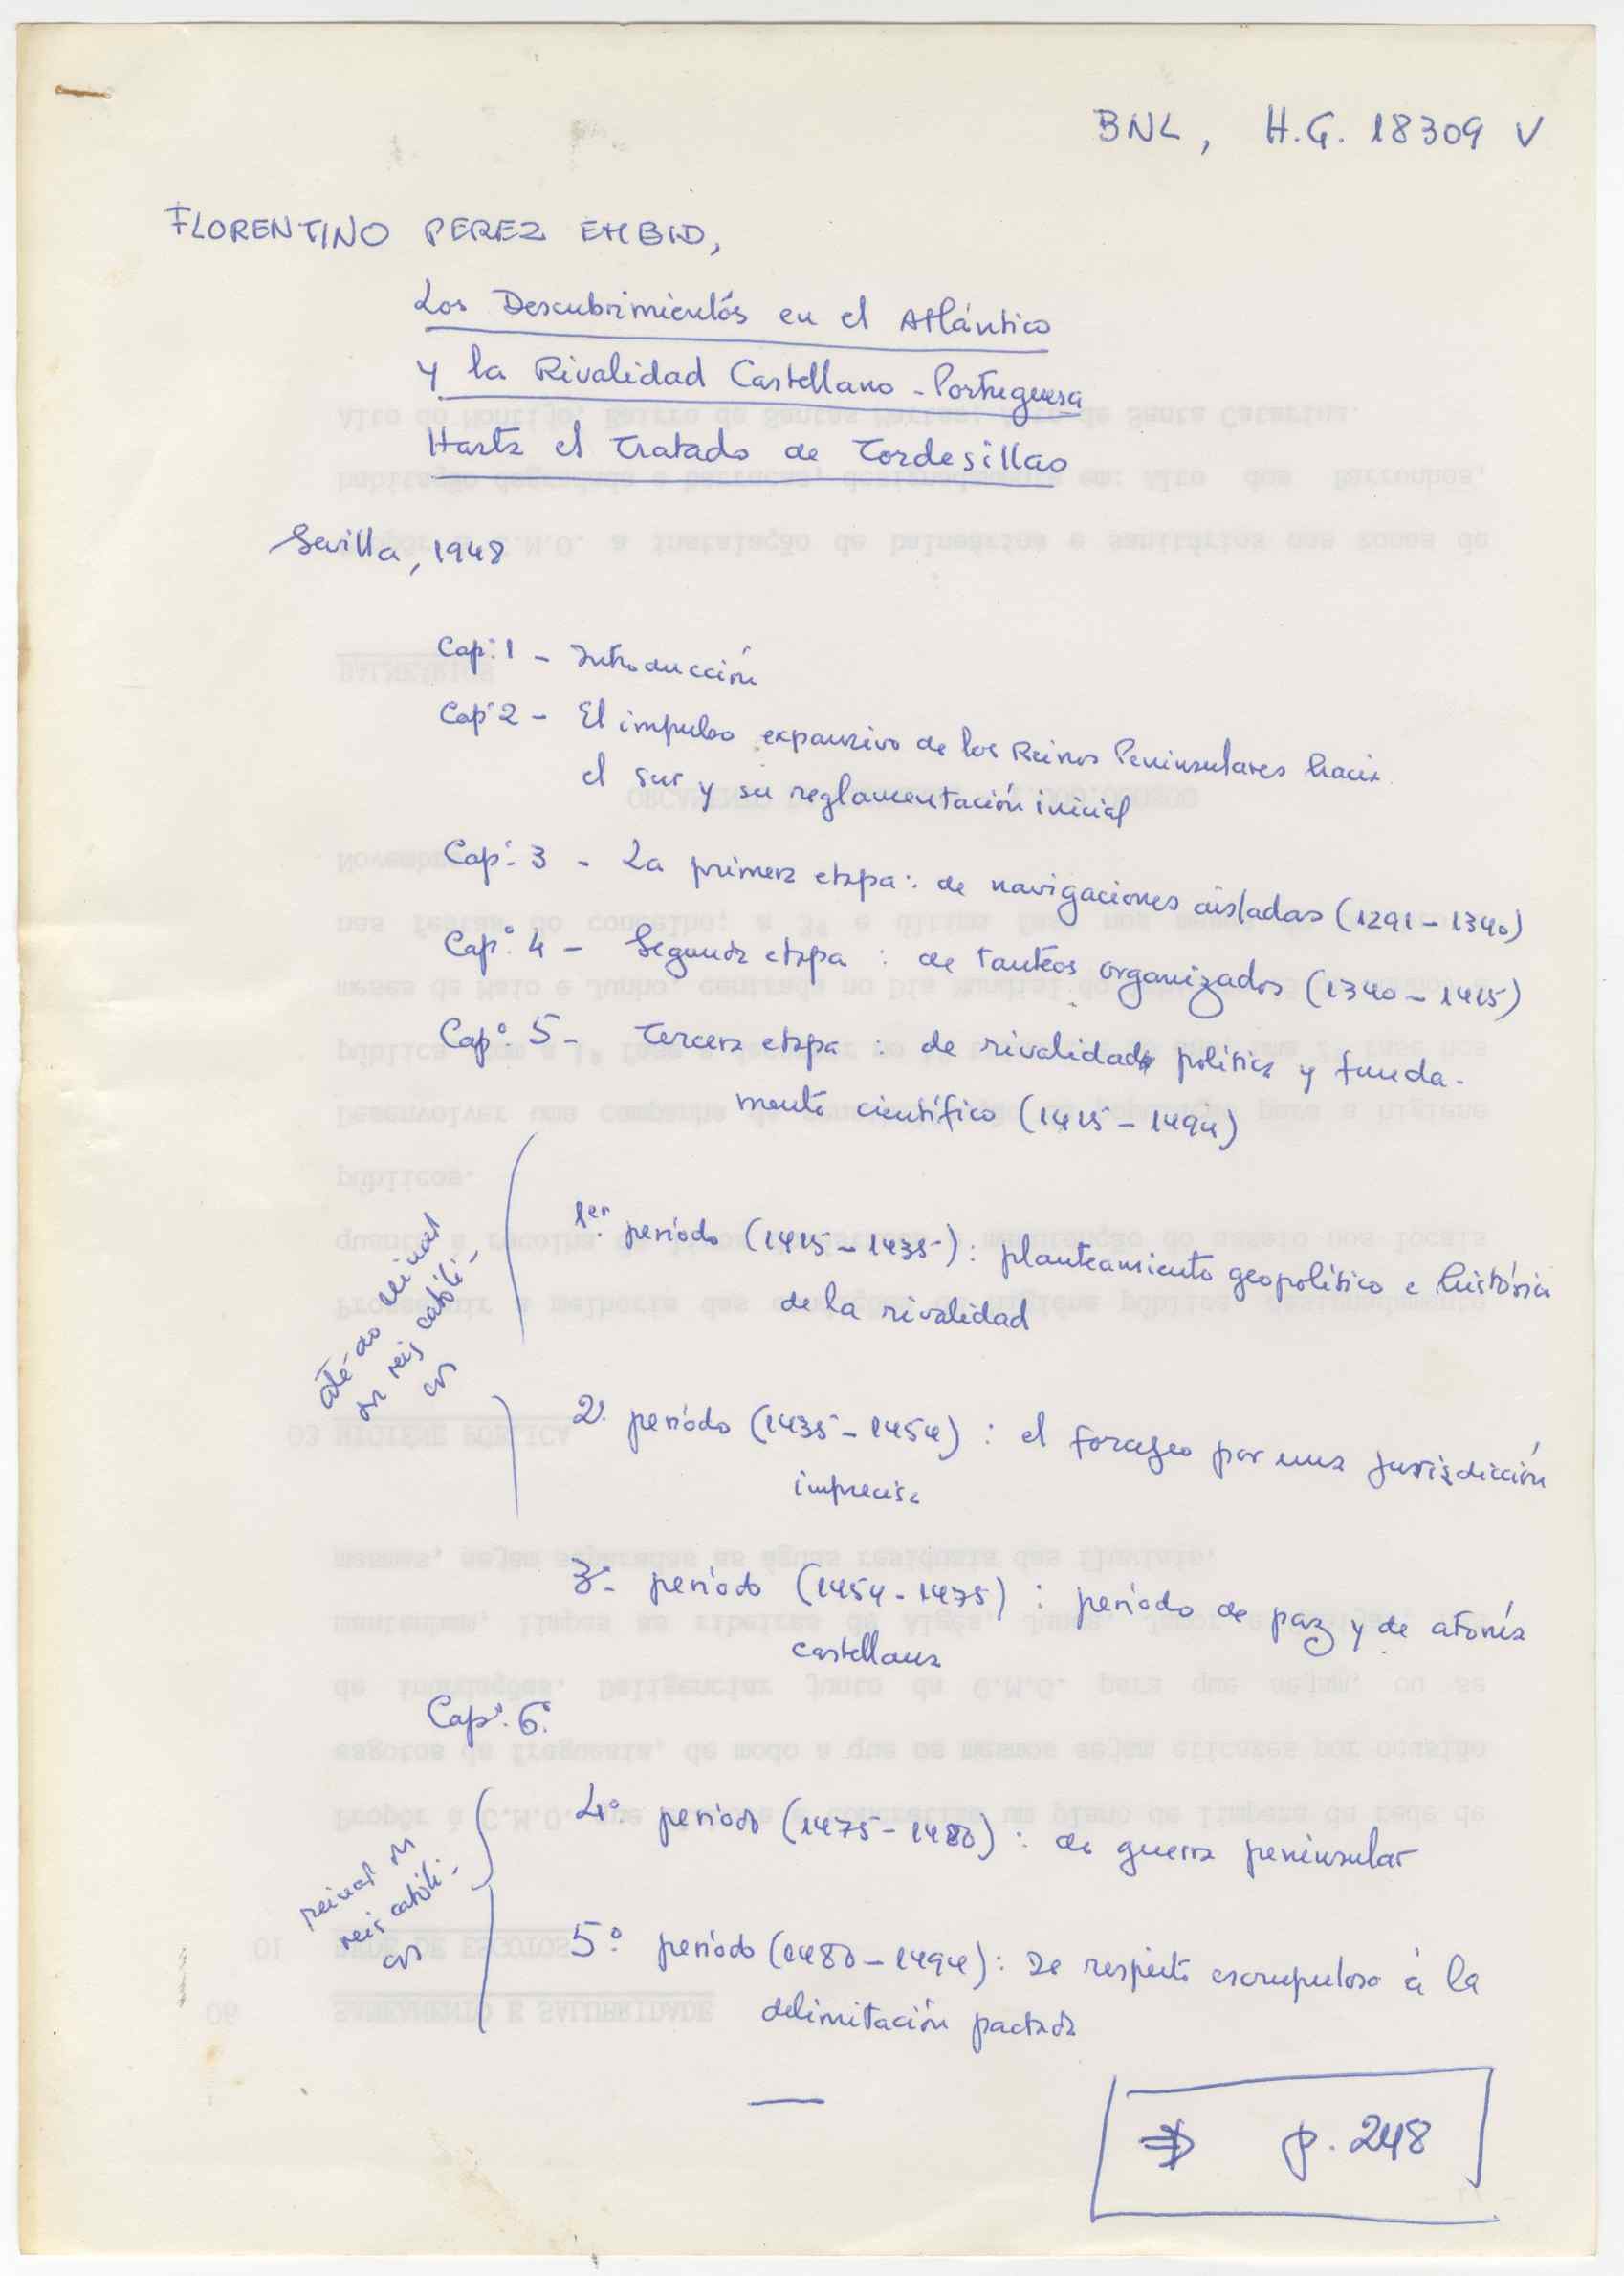 BNL, H.G. 18309 V
FLORENTINO PEREZ EMBID,
Los Descubrimientos en el Atlántico
y la Rivalidad Castellano-Portuguesa
Hasta el Tratado de Tordesillas
Sevilla, 1948
Cap.º 1 - Introducción
Cap.º 2 - El impulso expansivo de los Reinos Peninsulares hacia
el sur y su reglamentación inicial
Cap.º 3 - La primera etapa: de navigaciones aisladas (1291-1340)
Cap.º 4 - Segunda etapa: de tanteos organizados (1340-1415)
Cap.º 5 - Tercera etapa: de rivalidad politica y funda-
mento científico (1415-1494)
1er. período (1415-1435): planteamiento geopolítico e histórico
de la rivalidad
até ao reinad
dos reis católi-
cos
2º período (1435-1454): el forcejeo por una jurisdicción
imprecisa
3º período (1454-1475): período de paz y de atonía
castellana
Cap.º 6º
4º período (1475-1480): de guerra peninsular
reinad dos
reis católi-
cos
5º período (1480-1494): De respeito escrupuloso à la
delimitación pactada
⇒ p. 248